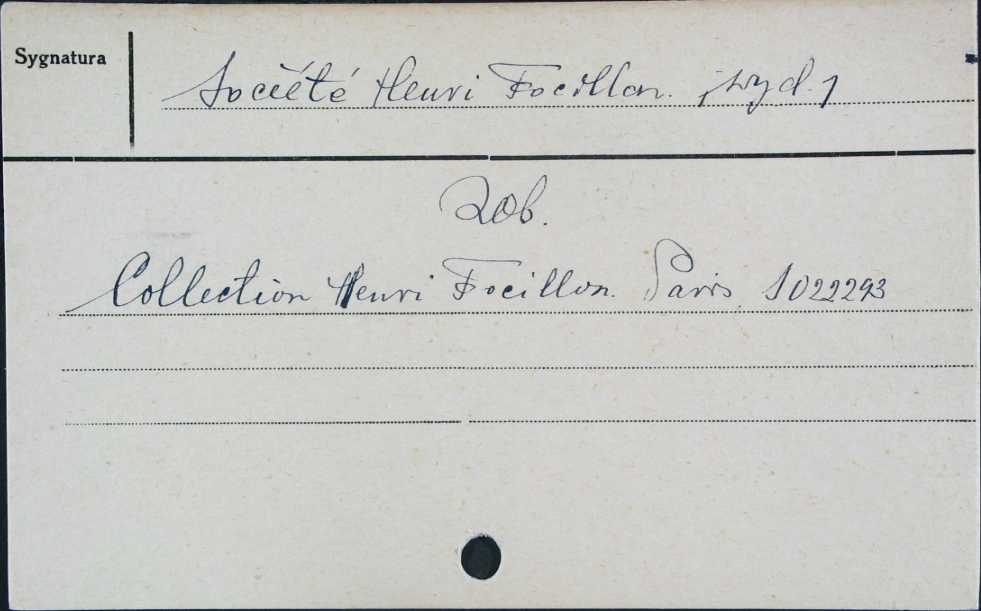 Sygnatura
Société Henri Focillon. (wyd.)
Zob.
Collection Henri Focillon. Paris. 1022293